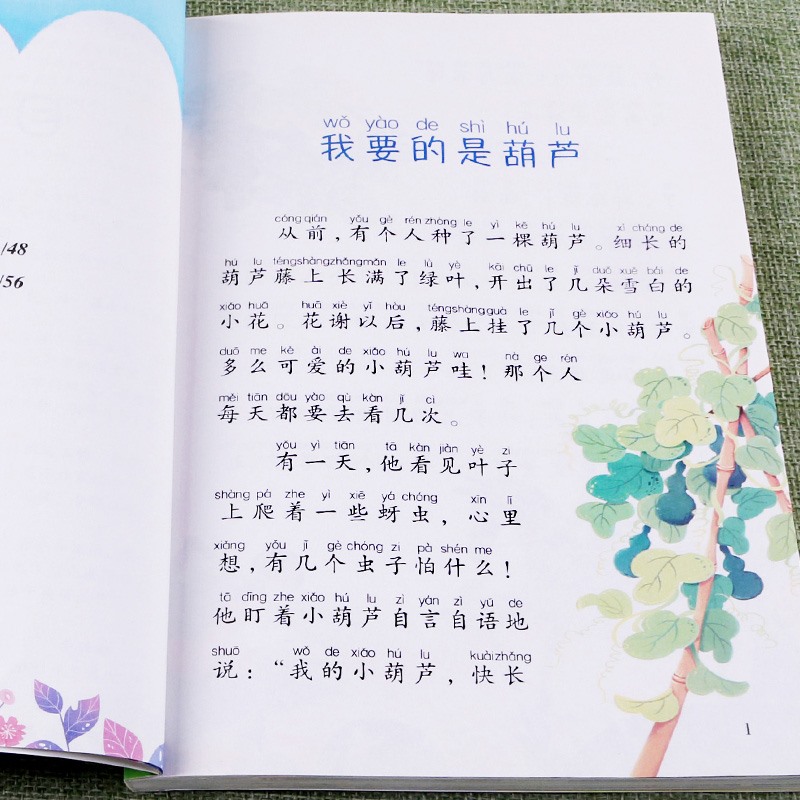 /48
/56
wǒ yào de shì hú lu
我要的是葫芦
cóng qián yǒu gè rén zhòng le yì kē hú lu xì cháng de
从前，有个人种了一棵葫芦。细长的
hú lu téng shàng zhǎng mǎn le lǜ yè kāi chū le jǐ duǒ xuě bái de
葫芦藤上长满了绿叶，开出了几朵雪白的
xiǎo huā huā xiè yǐ hòu téng shàng guà le jǐ gè xiǎo hú lu
小花。花谢以后，藤上挂了几个小葫芦。
duō me kě ài de xiǎo hú lu wa nà ge rén
多么可爱的小葫芦哇！那个人
měi tiān dōu yào qù kàn jǐ cì
每天都要去看几次。
yǒu yì tiān tā kàn jiàn yè zi
有一天，他看见叶子
shàng pá zhe yì xiē yá chóng xīn lǐ
上爬着一些蚜虫，心里
xiǎng yǒu jǐ gè chóng zi pà shén me
想，有几个虫子怕什么！
tā dīng zhe xiǎo hú lu zì yán zì yǔ de
他盯着小葫芦自言自语地
shuō wǒ de xiǎo hú lu kuài zhǎng
说：“我的小葫芦，快长
1